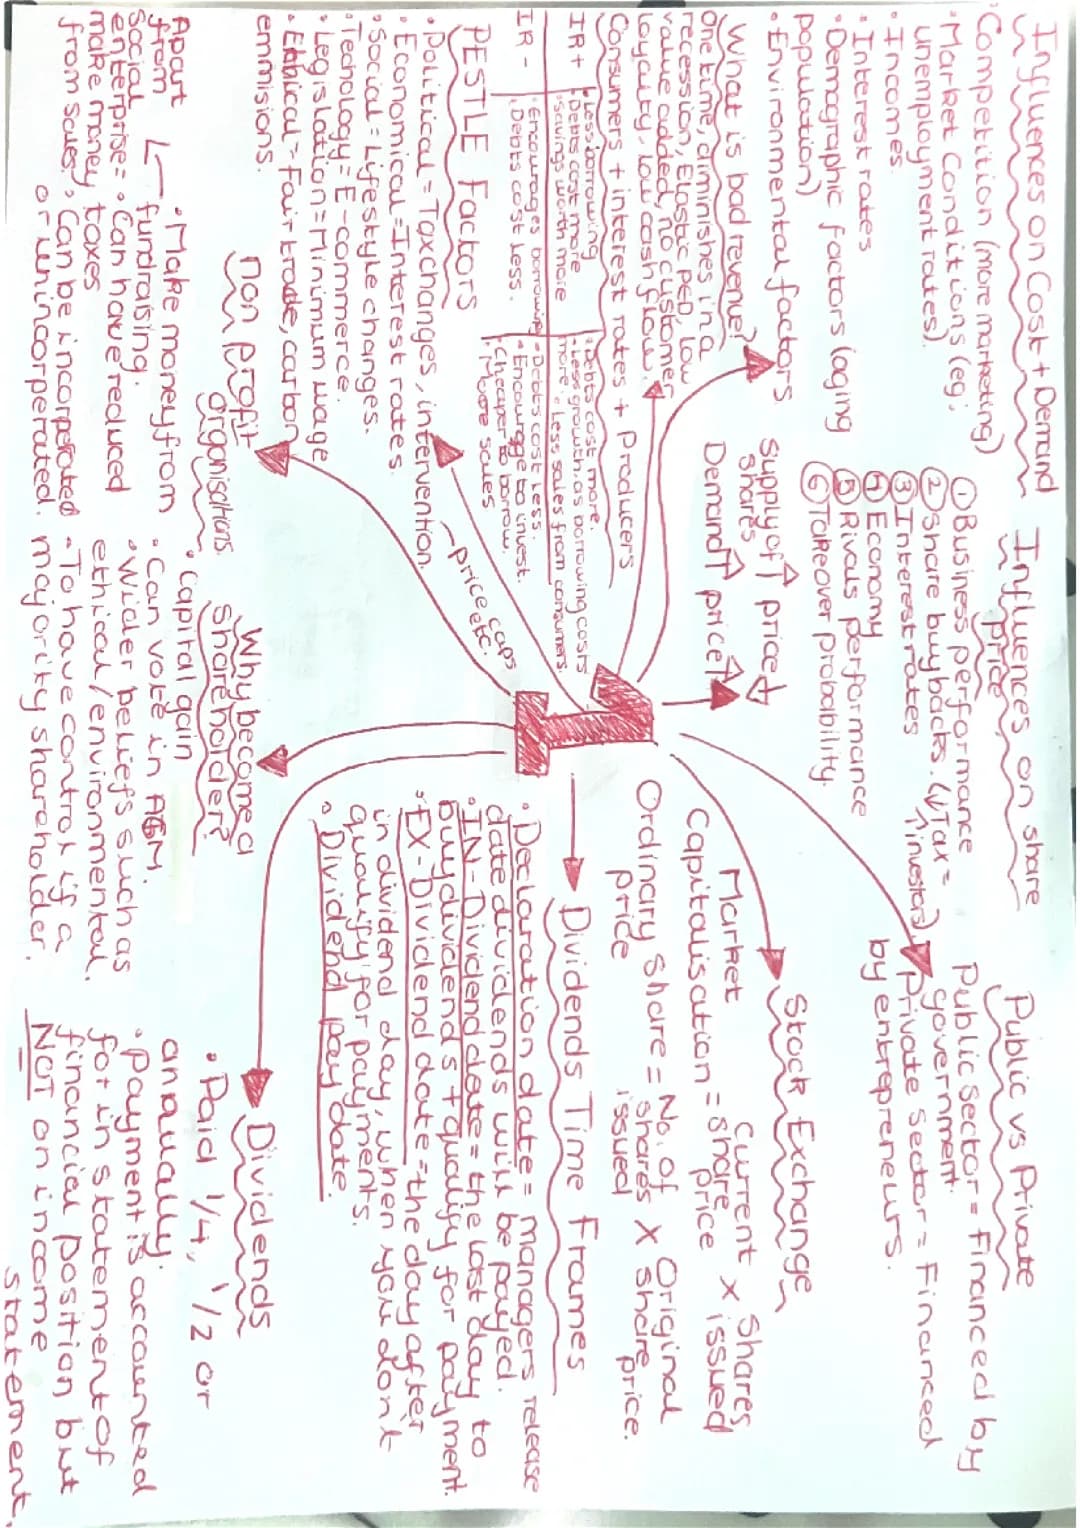 Influences on Cost + Demand
· Competition (more marketing)
· Market Conditions (eg,
unemployment rates).
· Incomes.
· Interest rates
· Demographic factors (aging
population)
· Environmental factors.
What is bad revenue?
One time, diminishes in a
recession, Elastic PED, low
value added, no customer
loyalty, low cash flow.
Consumers + interest rates + Producers
IR +
· Less borrowing
· Debts cost more
· Savings worth more
· Debts cost more.
· Less growth as borrowing costs
more. · Less sales from consumers.
IR -
· Encourages borrowing
· Debts cost less.
· Debts cost less.
· Encourage to invest.
· Cheaper to borrow.
· More sales
PESTLE Factors
· Political = Tax changes, intervention.
price caps
price etc.
· Economical = Interest rates.
· Social = Lifestyle changes.
· Techology = E-commerce.
· Legislation = Minimum wage
· Ethical = Fair trade, carbon
emmisions.
Non profit
organisations
Apart
from
social
enterprise =
make money
from sales
· Make money from
fundraising.
· Can have reduced
taxes
· Can be incorperated
or unincorperated.
Why become a
shareholder?
· Capital gain
· Can vote in AGM.
· Wider beliefs such as
ethical/environmental.
· To have control if a
majority shareholder.
Dividends
· Paid 1/4, 1/2 or
anually.
· Payment is accounted
for in statement of
financial position but
NOT on income
statement.
Influences on share
price
① Business performance
② Share buybacks. (↓Tax =
↑investors)
③ Interest rates
④ Economy
⑤ Rivals performance
⑥ Takeover probability.
Supply of ↑ price ↓
shares
Demand ↑ price ↑
1
Public vs Private
Public Sector = Financed by
government.
Private Sector = Financed
by entreprenеurs.
Stock Exchange
Market
Capitalisation = Current share price X Shares issued
Ordinary share price = No. of shares issued X Original share price.
Dividends Time Frames
· Declaration date = managers release
date dividends will be payed.
· IN-Dividend date = the last day to
buy dividends + qualify for payment.
· EX-Dividend date = the day after
in dividend day, when you dont
qualify for payments.
· Dividend pay date.